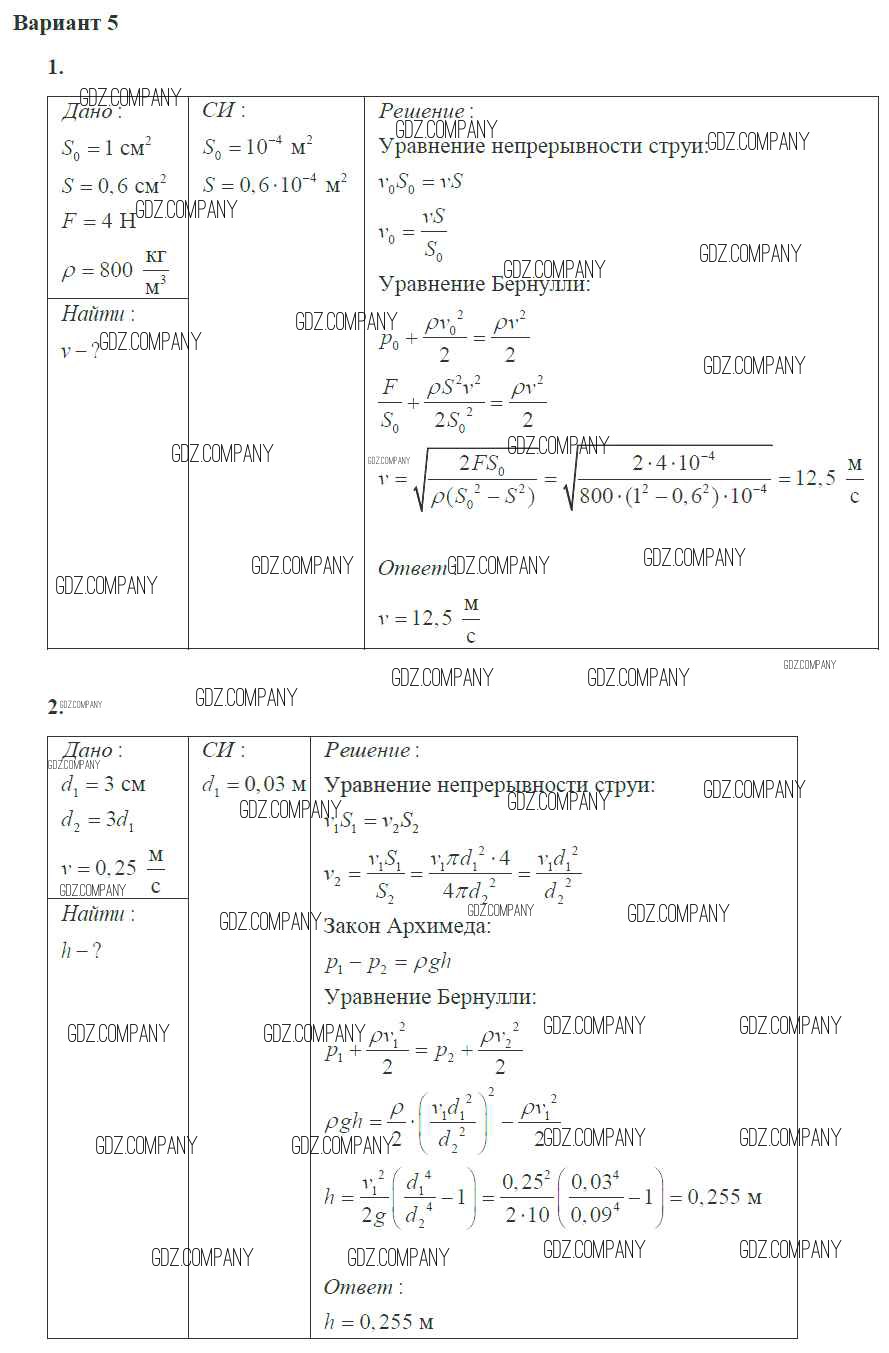 Вариант 5
1.
Дано :
S₀ = 1 см²
S = 0,6 см²
F = 4 Н
ρ = 800 кг/м³
Найти :
v − ?
СИ :
S₀ = 10⁻⁴ м²
S = 0,6·10⁻⁴ м²
Решение :
Уравнение непрерывности струи:
v₀S₀ = vS
v₀ = vS/S₀
Уравнение Бернулли:
p₀ + ρv₀²/2 = ρv²/2
F/S₀ + ρS²v²/2S₀² = ρv²/2
v = √(2FS₀/ρ(S₀² − S²)) = √(2·4·10⁻⁴/800·(1² − 0,6²)·10⁻⁴) = 12,5 м/с
Ответ
v = 12,5 м/с
2.
Дано :
d₁ = 3 см
d₂ = 3d₁
v = 0,25 м/с
Найти :
h − ?
СИ :
d₁ = 0,03 м
Решение :
Уравнение непрерывности струи:
v₁S₁ = v₂S₂
v₂ = v₁S₁/S₂ = v₁πd₁²·4/4πd₂² = v₁d₁²/d₂²
Закон Архимеда:
p₁ − p₂ = ρgh
Уравнение Бернулли:
p₁ + ρv₁²/2 = p₂ + ρv₂²/2
ρgh = ρ/2·(v₁d₁²/d₂²)² − ρv₁²/2
h = v₁²/2g(d₁⁴/d₂⁴ − 1) = 0,25²/2·10(0,03⁴/0,09⁴ − 1) = 0,255 м
Ответ :
h = 0,255 м
GDZ.COMPANY